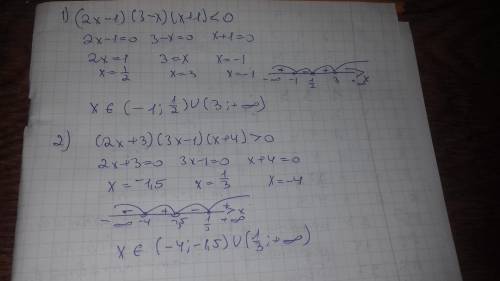 1) (2x-1)(3-x)(x+1)<0
2x-1=0 3-x=0 x+1=0
2x=1 3=x x=-1
x=1/2 x=3 x=-1
+ - + - x
-∞ -1 1/2 3 +∞
x ∈ (-1; 1/2)∪(3;+∞)
2) (2x+3)(3x-1)(x+4)>0
2x+3=0 3x-1=0 x+4=0
x=-1,5 x=1/3 x=-4
- + - + x
-∞ -4 -1,5 1/3 +∞
x ∈ (-4;-1,5)∪(1/3;+∞)